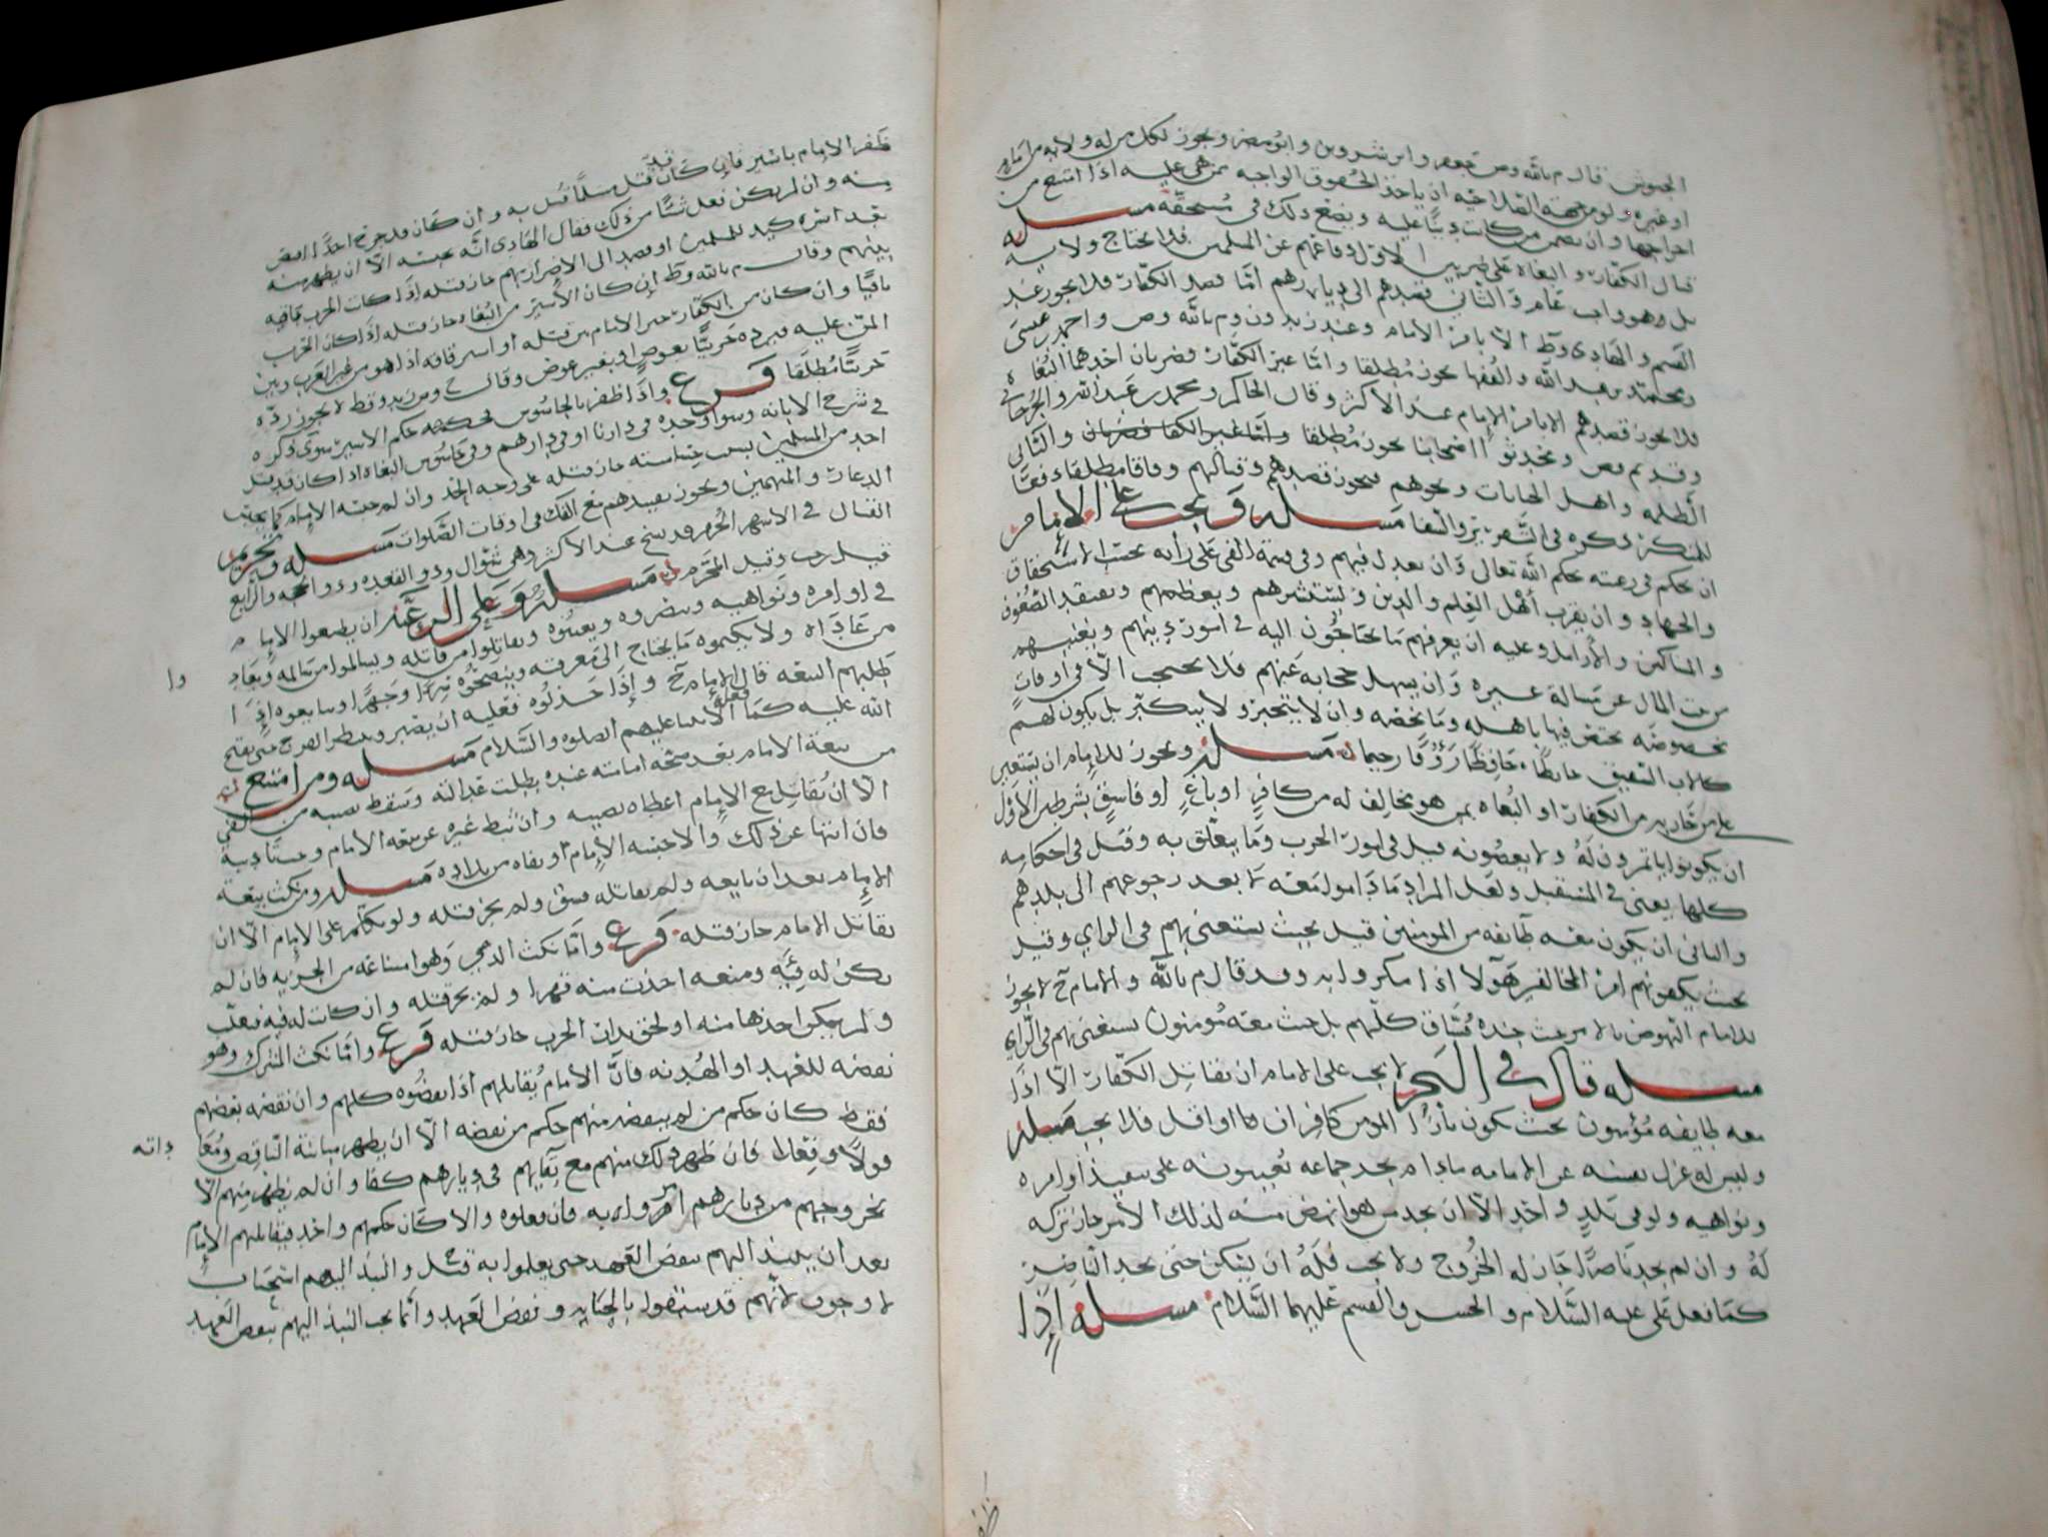 الجيوش قال م بالله وص جعفر وابن شروين وابو مضر ويجوز لكل من له ولاية من امام
او غيره ولو من جهة الصلاحية ان ياخذ الحقوق الواجبة ممن هي عليه اذا امتنع من
اخراجها وان يضمن من كانت دينا عليه ويضع ذلك في مستحقه مسله
قتال الكفار والبغاه على ضربين الاول دفاعهم عن المسلمين فلا يحتاج ولاية
بل وهو واجب عام والثاني قصدهم الى ديارهم اما قصد الكفار فلا يجوز عند
القسم والهادي وط الا بامر الامام وعند زيد ون وم بالله وص واحمد بن عيسى
ومحمد بن عبد الله والفقها يجوز مطلقا واما غير الكفار فضربان احدهما البغاه
فلا يجوز قصدهم الا بامر الامام عند الاكثر وقال الحاكم ومحمد بن عبد الله والجرجاني
وقديم قولي ومحدثو اصحابنا يجوز مطلقا والثاني
الظلمه واهل الجنايات ونحوهم فيجوز قصدهم وقتالهم وفاقا مطلقا دفعا
للمنكر ذكره في الشرح مسله ويجب على الامام
ان يحكم في رعيته حكم الله تعالى وان يعدل فيهم وفي قسمة الفي على رايه بحسب الاستحقاق
والجهاد وان يقرب اهل العلم والدين ويستشيرهم ويعظمهم ويتفقد الضعفا
والمساكين والارامل وعليه ان يعرفهم ما يحتاجون اليه في امور دينهم ويغنيهم
من بيت المال عن مسالة غيره وان يسهل حجابه عنهم فلا يحتجب الا في اوقات
مخصوصه يختص فيها باهله وما يخصه وان لا يتجبر ولا يتكبر بل يكون لهم
كالاب الشفيق حائطا حافظا رؤوفا رحيما مسله ويجوز للامام ان يستعين
على من حاربه من الكفار او البغاه بمن هو مخالف له من كافر او باغ او فاسق بشرطين الاول
ان يكونوا ياتمرون له ولا يعصونه قيل في امور الحرب وما يتعلق به وقيل في احكامه
كلها يعني في المستقبل ولعل المراد ما داموا معه لا بعد رجوعهم الى بلدهم
والثاني ان يكون معه طايفه من المومنين قيل بحيث يستغني بهم في الراي وقيل
بحيث يكفونهم امر المخالفين هولا اذا مكروا به وقد قال م بالله والامام ح لا يجوز
للامام النهوض بالامر حيث جنده فساق كلهم بل حيث معه مومنون يستغني بهم في الراي
مسله قال في البحر لا يجب على الامام ان يقاتل الكفار الا اذا
معه طايفه مؤمنون بحيث يكون بازا المومن كافران فما اقل فلا يجب مسله
وليس له عزل نفسه عن الامامه ما دام يجد جماعه يعينونه على تنفيذ اوامره
ونواهيه ولو في بلد واحد الا ان يجد من هو انهض منه لذلك الامر جاز تركه
له وان لم يجد ناصرا جاز له الخروج ولا يجب فله ان يسكن حتى يجد الناصر
كما فعل علي عليه السلام والحسن والقسم عليهما السلام مسله اذا
ظفر الامام باسير فان كان قد قتل مسلما قتل به وان كان قد جرح احدا اقتص
منه وان لم يكن فعل شيا من ذلك فقال الهادي انه يحبسه الا ان يظهر منه
بعد اسره كيد للمسلمين او قصد الى الاضرار بهم جاز قتله اذا كانت الحرب قايمه
بينهم وقال م بالله وط ان كان الاسير من البغاه جاز قتله اذا كان الحرب
باقيا وان كان من الكفار خير الامام بين قتله او استرقاقه اذا هو من غير العرب وبين
المن عليه فيرده حربيا بعوض او بغير عوض وقال ح ومن زيد وط لا يجوز رده
حربيا مطلقا فرع واذا ظفر بالجاسوس فحكمه حكم الاسير سوى ذكره
في شرح الابانه وسوا وجده في دارنا او في دارهم وفي جاسوس البغاه اذا كان قد قتل
احد من المسلمين بسبب جساسته جاز قتله على وجه الحد وان لم حبسه الامام كما يحبس
الدعار والمتهمين ويجوز تقييدهم مع الفك في اوقات الصلوات مسله وتحريم
القتال في الاشهر الحرم قد نسخ عند الاكثر وهي شوال وذو القعده وذو الحجه والرابع
قيل رجب وقيل المحرم مسله وعلى الرعيه ان يطيعوا الامام
في اوامره ونواهيه وينصروه ويعينوه ويقاتلوا من قاتله ويسالموا من سالمه ويعادوا
وا
من عاداه ولا يكتموه ما يحتاج الى معرفته وينصحوه سرا وجهرا ويبايعوه اذا
طلبهم البيعه قال الامام ح واذا خذلوه فعليه ان يصبر وينتظر الفرج حتى يفتح
الله عليه كما فعله الانبيا عليهم الصلوه والسلام مسله ومن امتنع
من بيعة الامام بعد صحه امامته عنده بطلت عدالته وسقط نصيبه من الفي
الا ان يقاتل مع الامام اعطاه نصيبه وان ثبط غيره عن بيعه الامام وجب تاديبه
فان انتها عن ذلك والا حبسه الامام او نفاه من بلاده مسله ومن نكث بيعة
الامام بعد ان بايعه ولم يقاتله فسق ولم يجز قتله ولو تكلم على الامام الا ان
يقاتل الامام جاز قتله فرع واما نكث الذمي وهو امتناعه من الجزيه فان لم
يكن له فيه ومنعه اخذت منه قهرا ولم يجز قتله وان كانت له فيه فغلب
ولم يمكن اخذها منه او لحق بدار الحرب جاز قتله فرع واما نكث المشرك وهو
نقضه للعهد او الهدنه فان الامام يقاتلهم اذا نقضوه كلهم وان نقضه بعضهم
فقط كان حكم من لم ينقض منهم حكم من نقضه الا ان يظهر مباينة الناقض ومعاداته
داته
قولا وفعلا فان ظهر ذلك منهم مع بقايهم في ديارهم كفا وان لم يظهر منهم الا
بخروجهم من ديارهم امروا به فان فعلوه والا كان حكمهم واحد فيقاتلهم الامام
بعد ان ينبذ اليهم بنقض العهد حتى يعلموا به قيل والنبذ اليهم استحباب
لا وجوب لانهم قد سبقوا بالخيانه ونقض العهد وانما يجب النبذ اليهم بنقض العهد